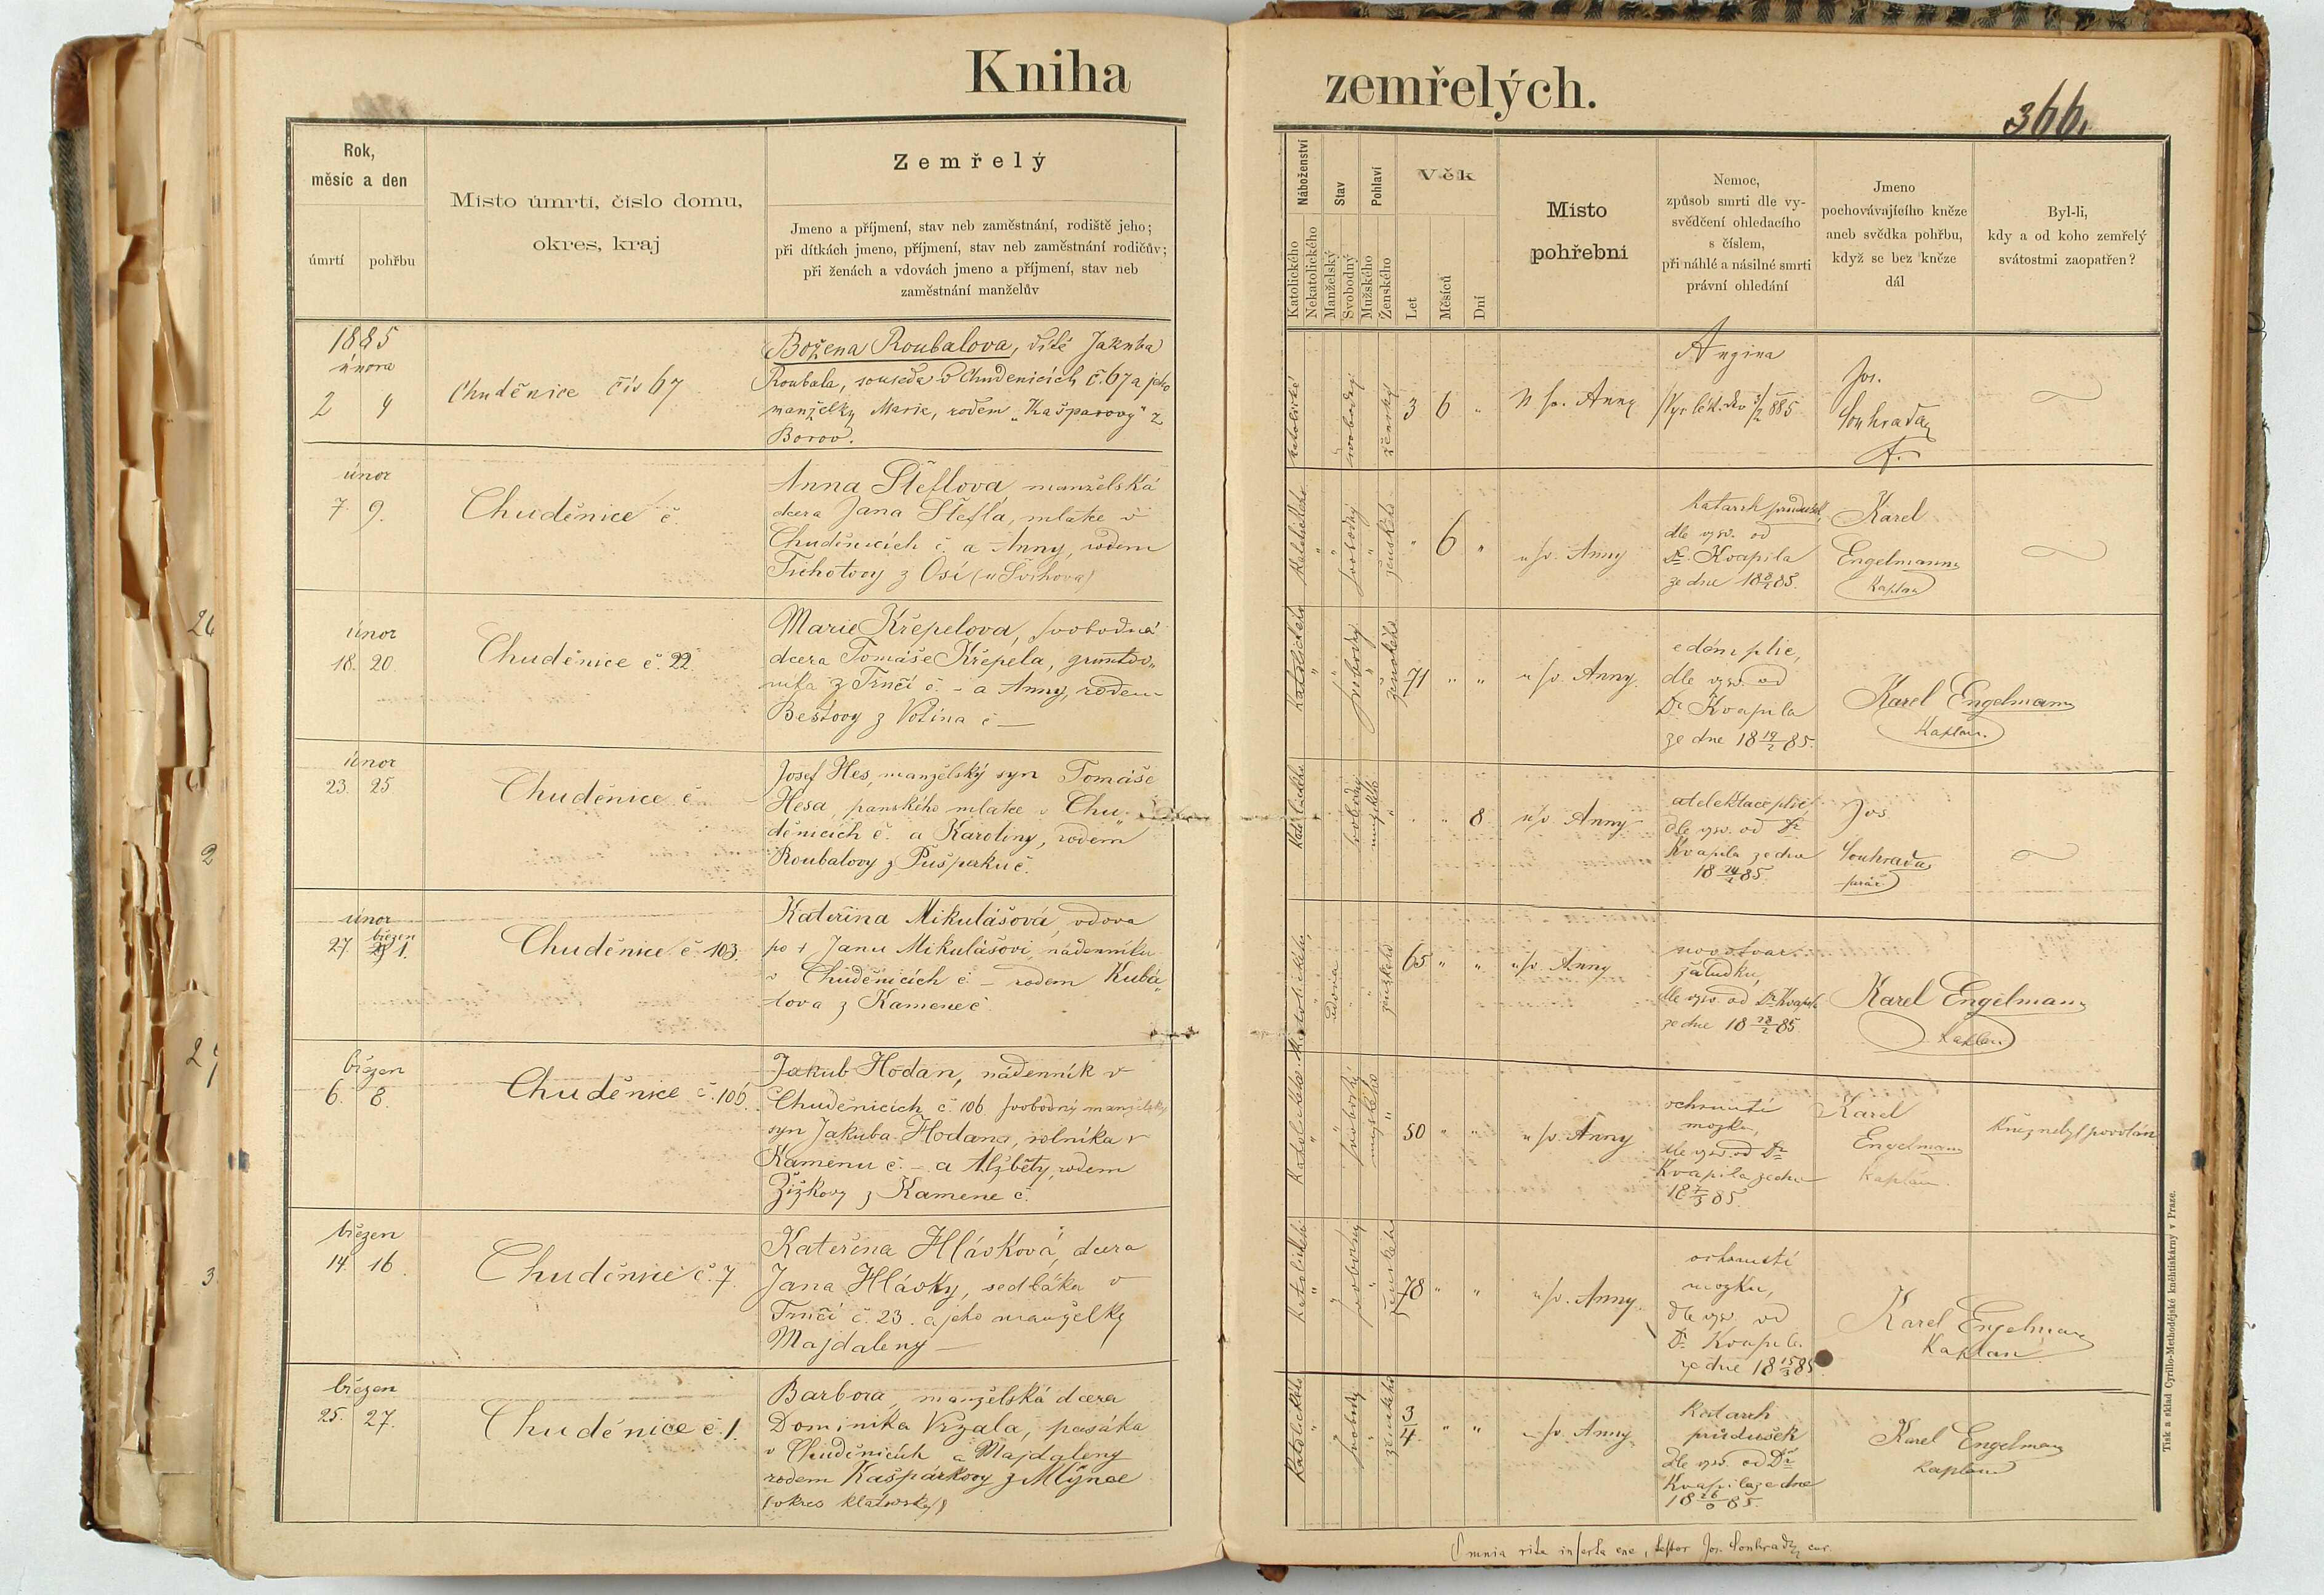 Kniha
zemřelých.
366.
Rok,
měsíc a den
úmrtí
pohřbu
Místo úmrtí, číslo domu,
okres, kraj
Zemřelý
Jmeno a příjmení, stav neb zaměstnání, rodiště jeho;
při dítkách jmeno, příjmení, stav neb zaměstnání rodičův;
při ženách a vdovách jmeno a příjmení, stav neb
zaměstnání manželův
Náboženství
Katolického
Nekatolického
Stav
Manželský
Svobodný
Pohlaví
Mužského
Ženského
Věk
Let
Měsíců
Dní
Místo
pohřební
Nemoc,
způsob smrti dle vy-
svědčení ohledacího
s číslem,
při náhlé a násilné smrti
právní ohledání
Jmeno
pochovávajícího kněze
aneb svědka pohřbu,
když se bez kněze
dál
Byl-li,
kdy a od koho zemřelý
svátostmi zaopatřen?
1885
února
2 4
Chuděnice čís 67
Božena Roubalova, dítě Jakuba
Roubala, souseda v Chudenicích č. 67 a jeho
manželky Marie, rodem „Kašparovy" z
Borov.
katolické
ženský
3 6 "
U sv. Anny
Angina
3/2 885
Jos.
Souhrada
únor
7. 9.
Chuděnice č.
Anna Šteflová manželská
dcera Jana Štefla, mlatce v
Chuděnicích č. a Anny, rodem
Tichotovy z Osí (u Švihova)
Katolického
svobodný
ženského
" 6 "
u sv. Anny
Katarrh průdušek,
dle vysv. od
Dr. Kvapila
ze dne 18 8/2 85.
Karel
Engelmann
Kaplan
únor
18. 20.
Chuděnice č. 22.
Marie Křepelová, svobodná
dcera Tomáše Křepela, gruntov„
níka z Trnčí č. – a Anny, rodem
Beštovy z Volína č –
Katolického
svobodný
ženského
71 " "
u sv. Anny.
edém plic,
dle vysv. od
Dr Kvapila
ze dne 18 19/2 85.
Karel Engelmann
Kaplan.
únor
23. 25.
Chuděnice č
Josef Hes, manželský syn Tomáše
Hesa, panského mlatce v Chu„
děnicích č. a Karoliny, rodem
Roubalovy z Pušperku č.
Katolického
svobodný
mužského
" " 8
u sv. Anny
atelektace plic
dle vysv. od Dr
Kvapila ze dne
18 24/2 85.
Jos.
Souhrada
farář
únor
březen
27 1.
Chuděnice č 103.
Kateřina Mikulášová, vdova
po † Janu Mikulášovi, nádenníku
v Chuděnicích č. – rodem Kubá„
tova z Kamene č
Katolického
vdova
ženského
65 " "
u sv. Anny
novotvar
žaludku,
dle vysv. od Dr Kvapila
ze dne 18 28/2 85
Karel Engelmann
Kaplan
březen
6. 8.
Chuděnice č. 106
Jakub Hodan, nádenník v
Chuděnicích č. 106 svobodný manželský
syn Jakuba Hodana, rolníka v
Kamenu č. – a Alžběty, rodem
Žižkovy z Kamene č.
Katolického
svobodný
mužského
50 " "
u sv. Anny
ochrnutí
mozku,
dle vysv. od Dr
Kvapila ze dne
18 7/3 85.
Karel
Engelmann
Kaplan.
Kněz nebyl povolán
březen
14. 16.
Chuděnice č. 7.
Kateřina Hlávková, dcera
Jana Hlávky, sedláka v
Trnčí č. 23. a jeho manželky
Majdaleny –
Katolického
svobodný
ženského
78 " "
u sv. Anny
ochrnutí
mozku,
dle vysv. od
Dr. Kvapila
ze dne 18 15/3 85
Karel Engelmann
Kaplan
březen
25. 27.
Chuděnice č. 1.
Barbora, manželská dcera
Dominika Vrzala, pasáka
v Chuděnicích a Majdaleny
rodem Kašpárkovy z Mlýnce
(okres klatovský)
Katolického
svobodný
ženského
3/4 " "
u sv. Anny
Katarrh
průdušek
dle vysv. od Dr
Kvapila ze dne
18 26/ 85.
Karel Engelman
kaplan
Omnia rite inserta esse, testor Jos. Souhrada cur.
Tisk a sklad Cyrillo-Methodějské knihtiskárny v Praze.